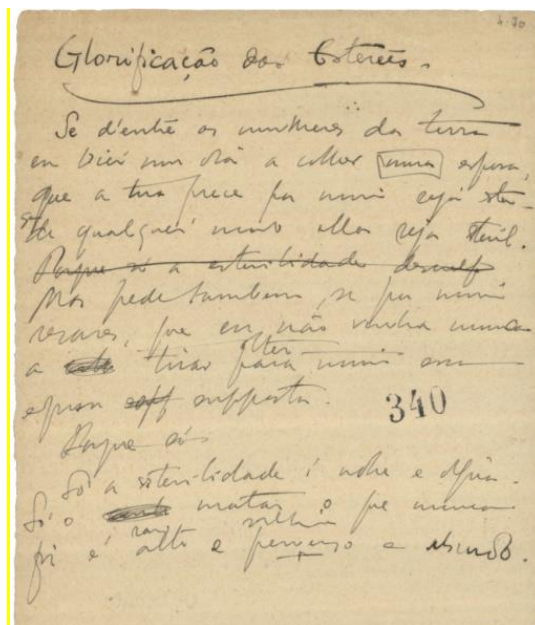 4-30
Glorificação das Estereis.
Se d'entre as mulheres da terra
eu vier um dia a colher uma esposa,
que a tua prece por mim seja
de qualquer modo ella seja steril.
Porque só a esterilidade
Mas pede tambem, se por mim
rezares, que eu não venha nunca
a obter
tirar para mim essa
esposa supposta.
340
Porque só
Só a esterilidade é nobre e digna.
Só o matar o que nunca
raro sublime
foi é alto e perverso e absurdo.